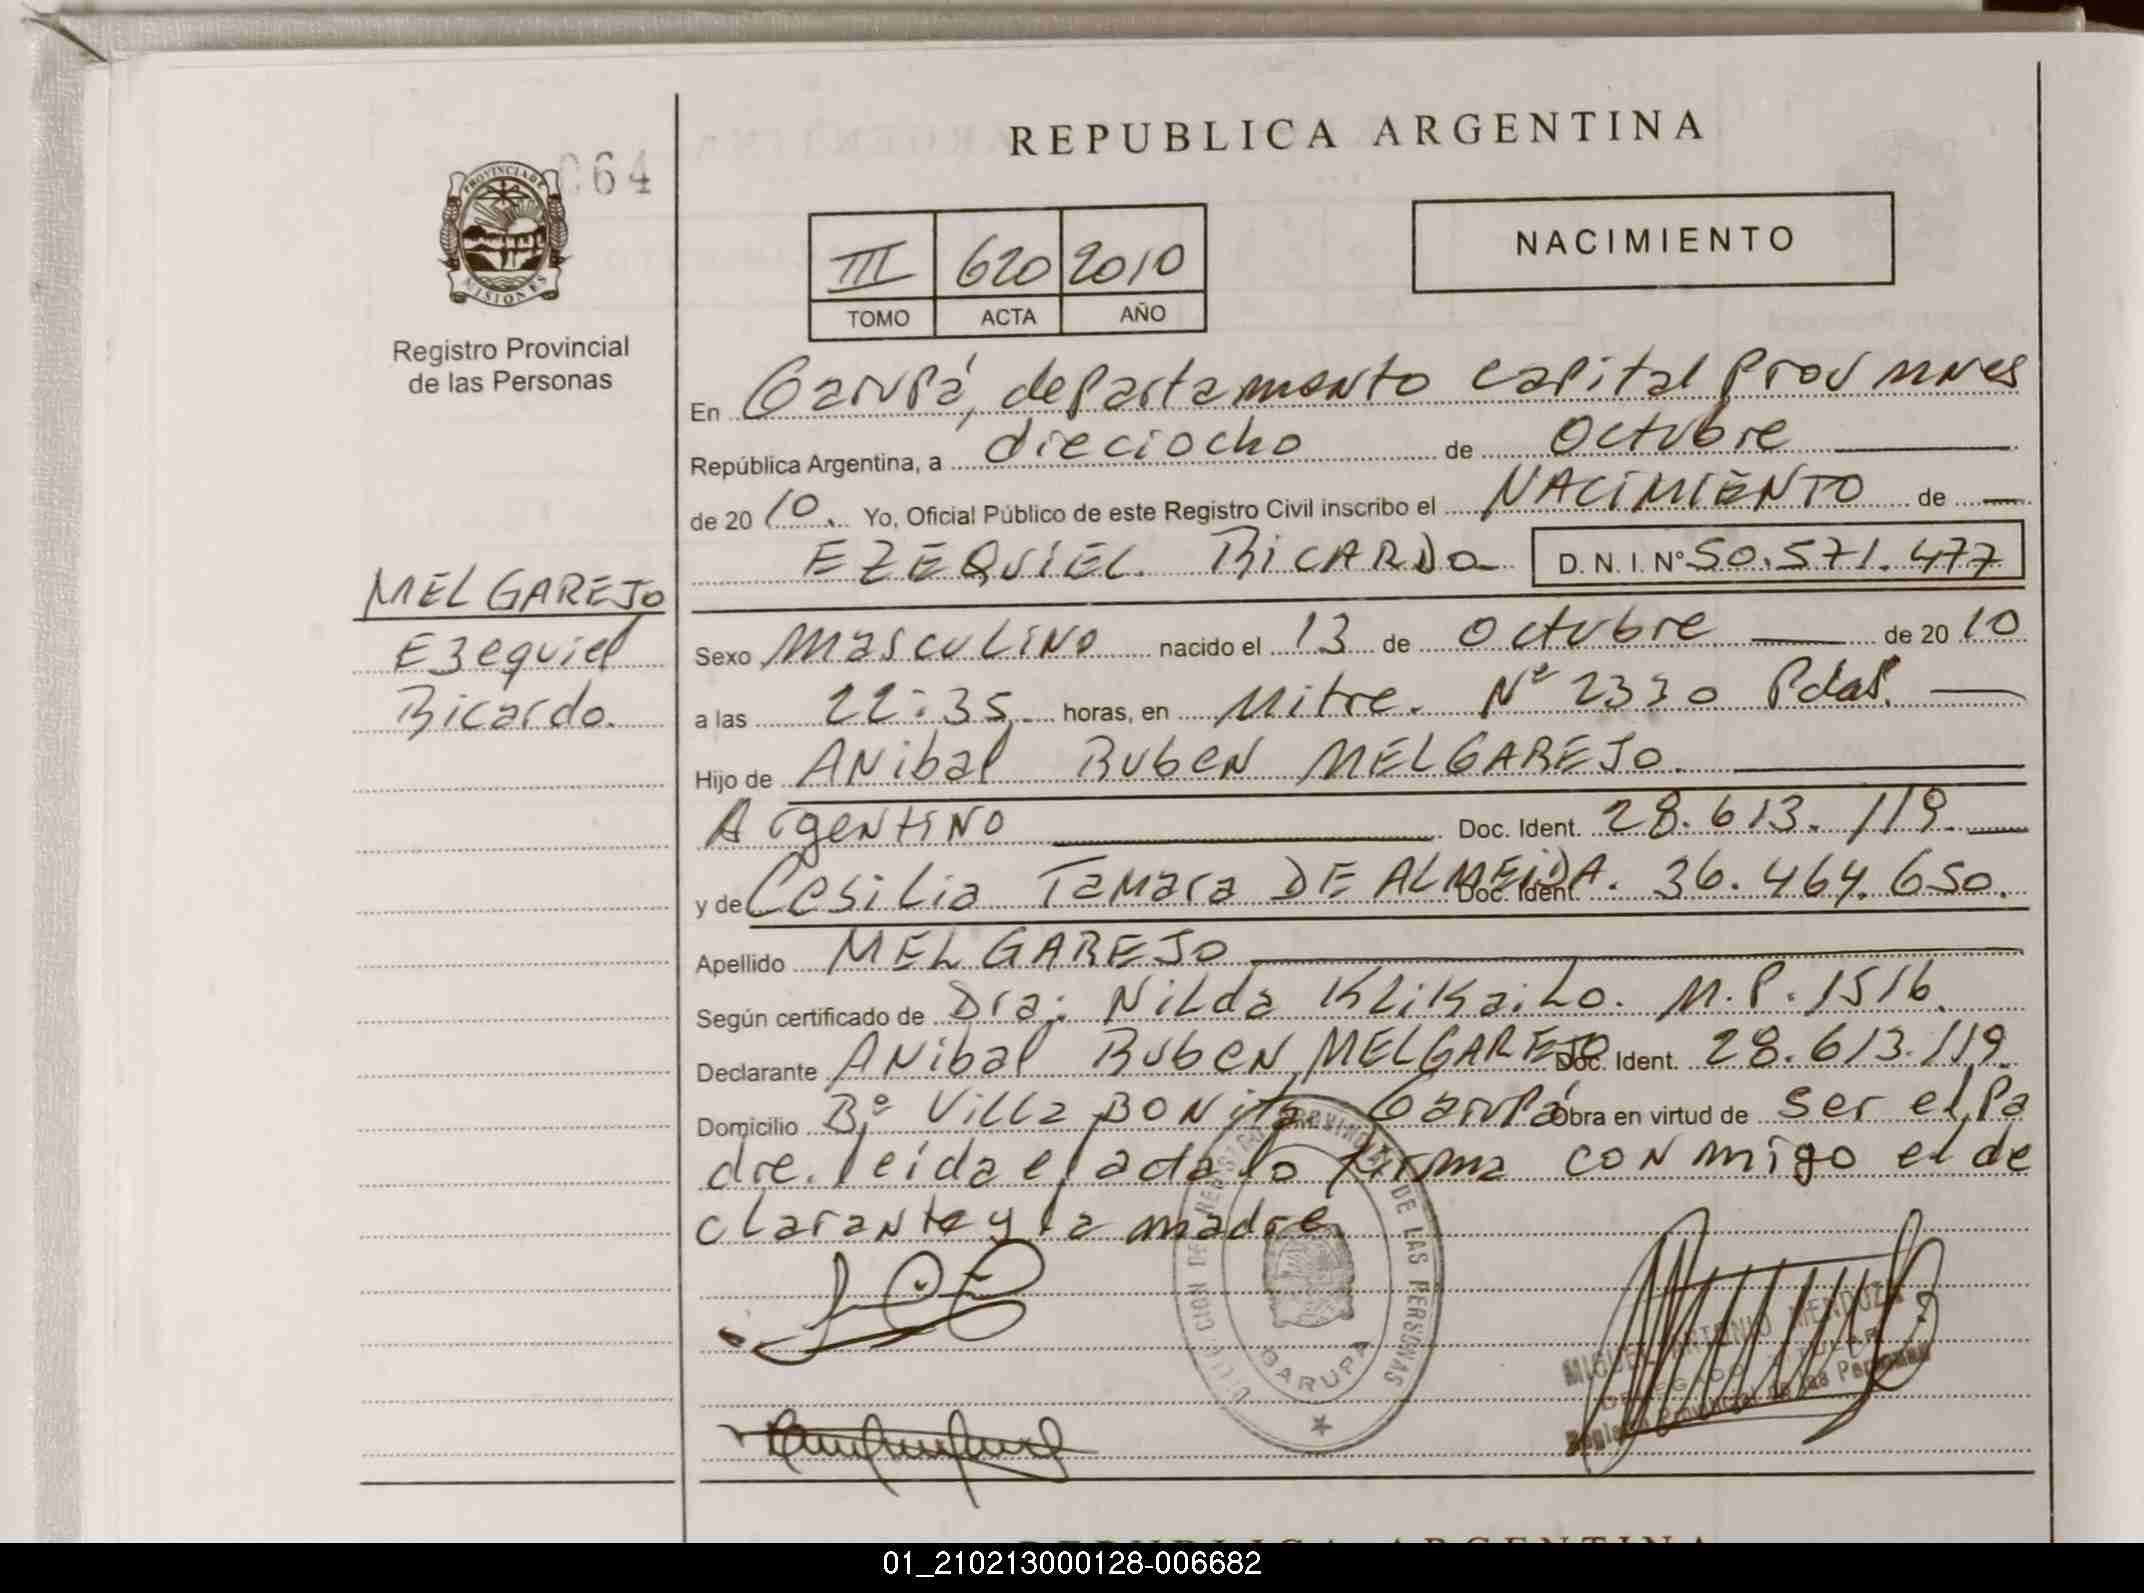 REPUBLICA ARGENTINA
064
PROVINCIA DE
MISIONES
Registro Provincial
de las Personas
NACIMIENTO
III 620 2010
TOMO ACTA AÑO
En Garupá, departamento capital Prov mnes
República Argentina, a dieciocho de Octubre
de 2010. Yo, Oficial Público de este Registro Civil inscribo el NACIMIENTO de
EZEQUIEL RICARDO D. N. I. Nº 50.571.477
MELGAREJO
Ezequiel
Ricardo.
Sexo masculino nacido el 13 de Octubre de 2010
a las 22:35 horas, en Mitre. Nº 2330 Pdas.
Hijo de Anibal Ruben MELGAREJO.
Argentino Doc. Ident. 28.613.119.
y de Cesilia Tamara DE ALMEIDA. Doc. Ident. 36.464.650.
Apellido MELGAREJO
Según certificado de Dra: Nilda Klikailo. M.P. 1516.
Declarante Anibal Ruben MELGAREJO Doc. Ident. 28.613.119
Domicilio Bº Villa Bonita Garupá Obra en virtud de ser el Pa
dre. leida el acta lo firma conmigo el de
clarante y la madre
DIRECCION DEL REGISTRO PROVINCIAL DE LAS PERSONAS
GARUPA
MIGUEL ANTONIO MENDOZA
DELEGADO TITULAR
Registro Provincial de las Personas
REPUBLICA ARGENTINA
01_210213000128-006682